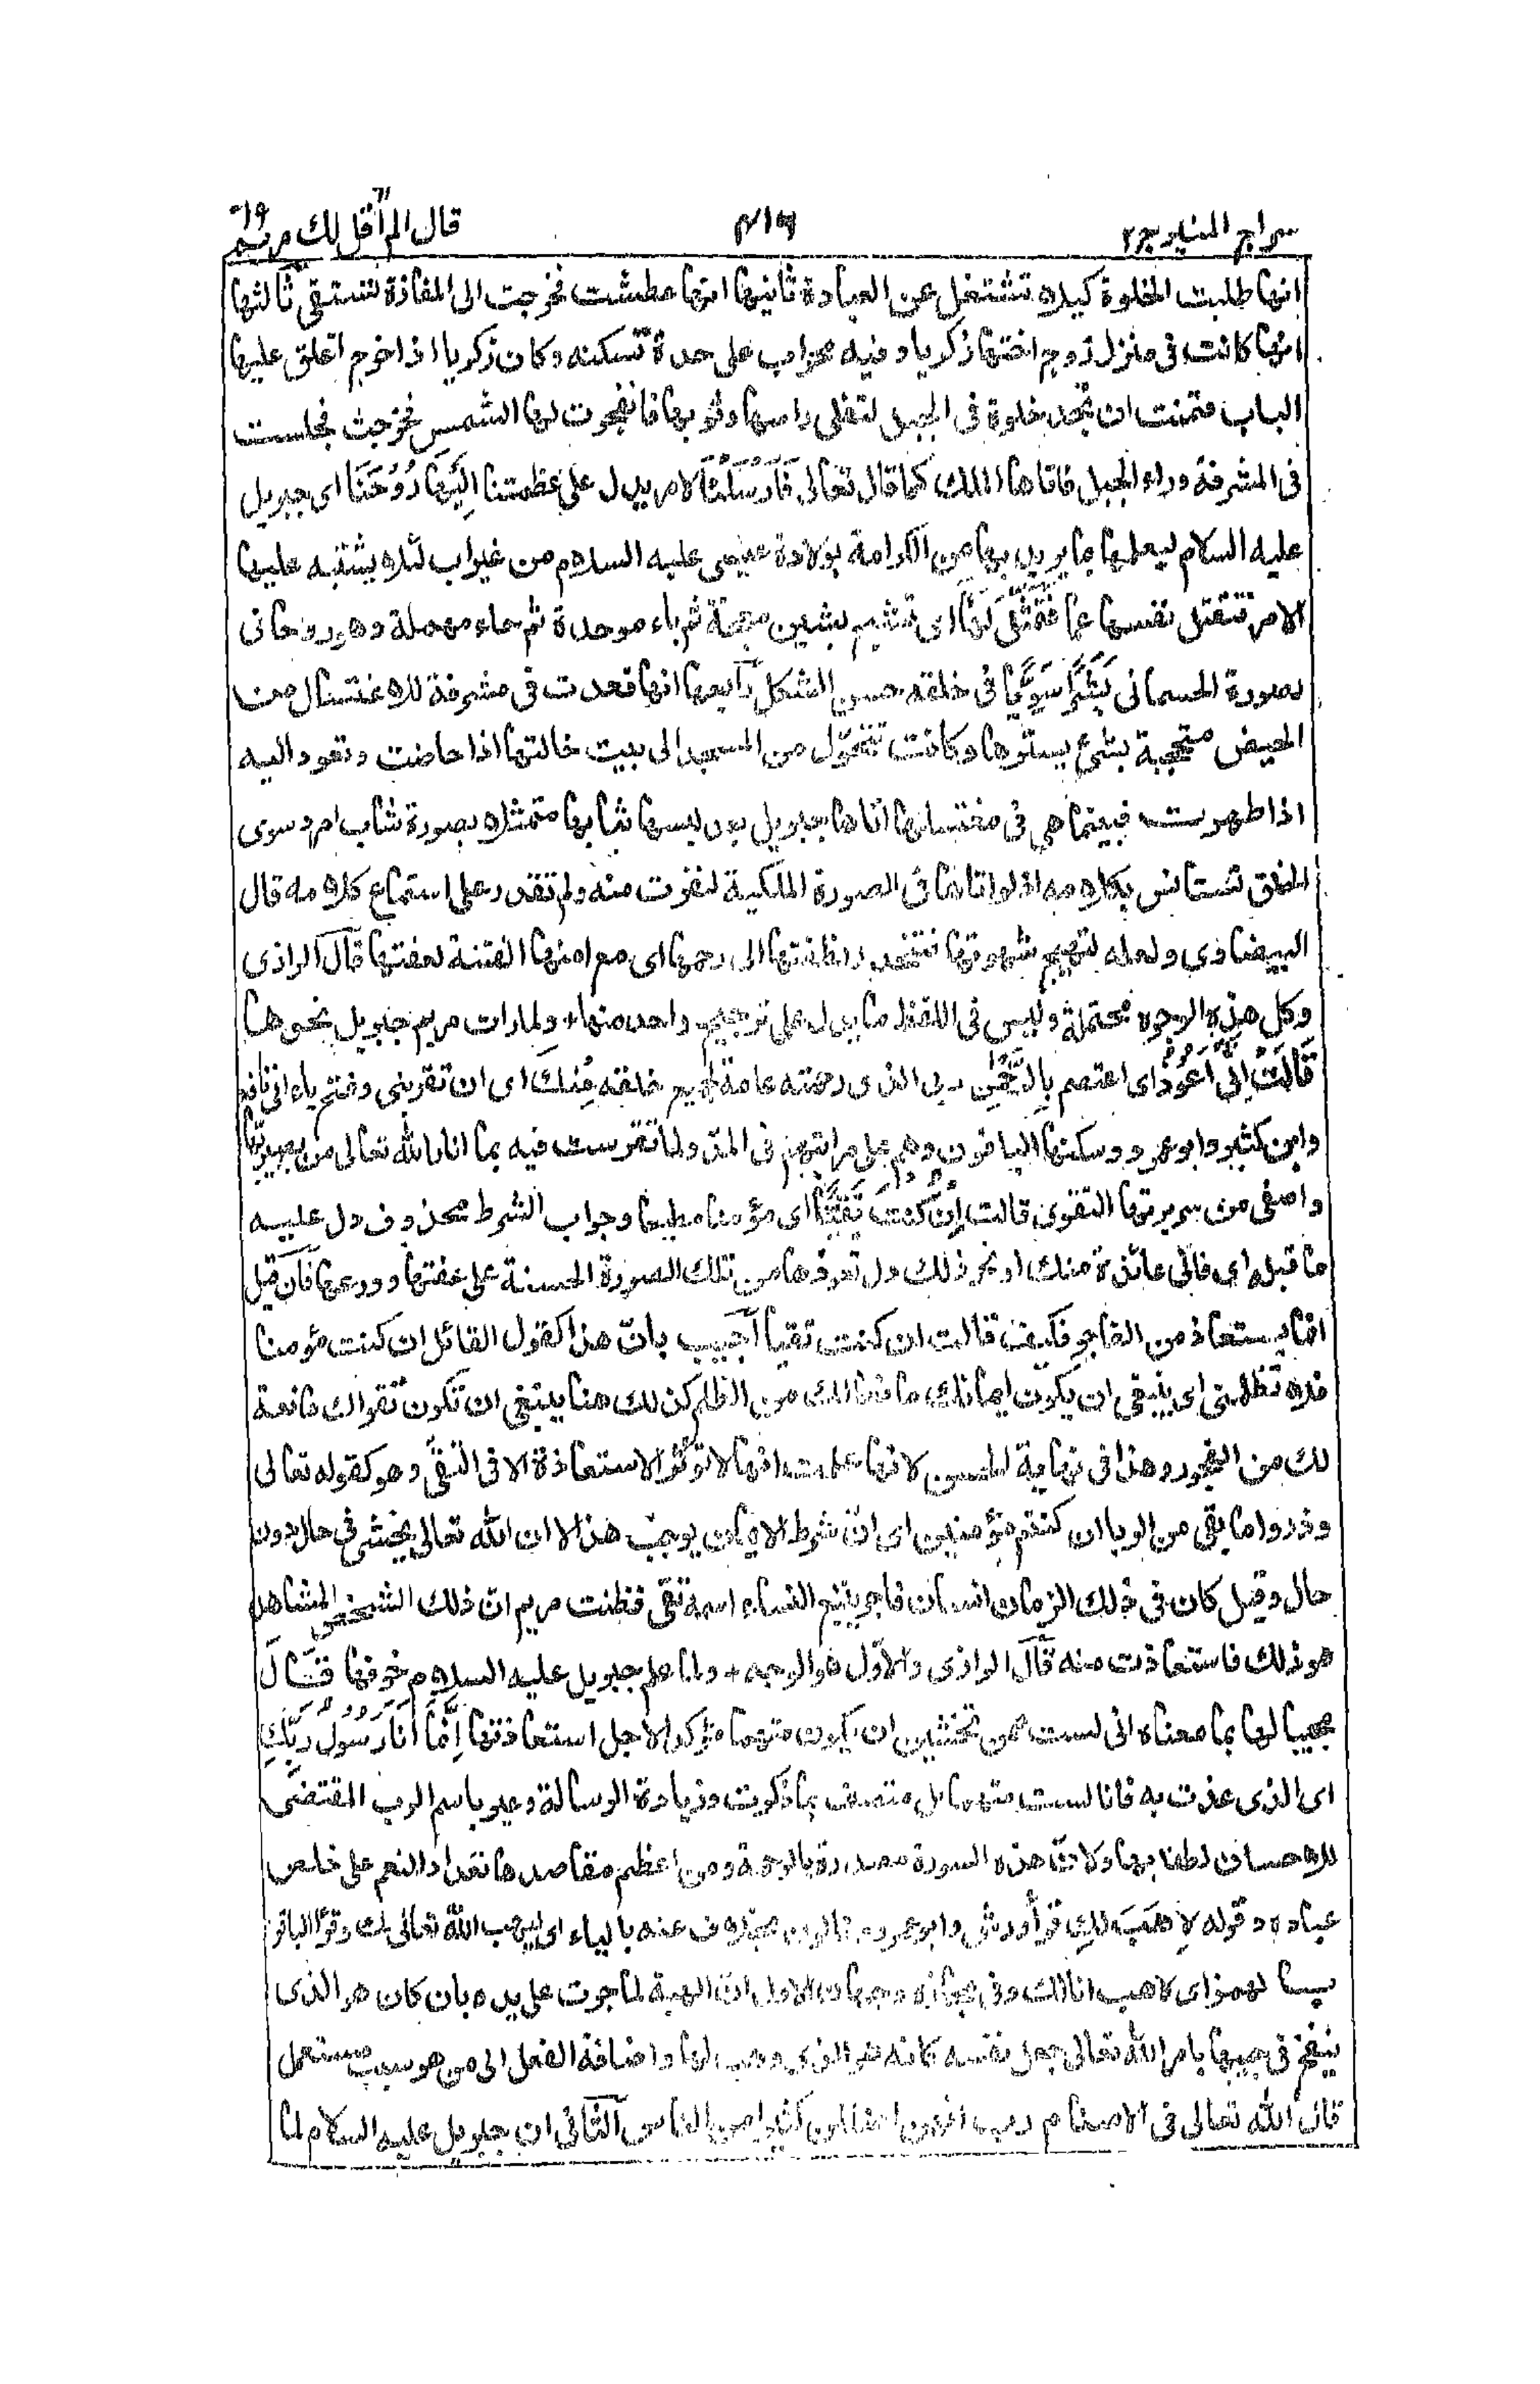 سراج المنير ج٢ ٤١٦ قال الم اقل لك ١٦ مريم ١٩
انها طلبت الخلوة كيلا تشتغل عن العبادة ثانيها انها عطشت فخرجت الى المفازة لتستقى ثالثها
انها كانت فى منزل زوج اختها زكريا وفيه محراب على حدة تسكنه وكان زكريا اذا خرج اغلق عليها
الباب فتمنت ان تجد خلوة فى الجبل لتفلى راسها وثوبها فانفجرت لها الشمس فخرجت فجلست
فى المشرفة وراء الجبل فاتاها الملك كما قال تعالى فَأَرْسَلْنَا لامر يدل على عظمتنا إِلَيْهَا رُوحَنَا اى جبريل
عليه السلام ليعلمها بما يريد بها من الكرامة بولادة عيسى عليه السلام من غير اب لئلا يشتبه عليها
الامر فتقتل نفسها غما فَتَمَثَّلَ لَهَا اى تشبح بشين معجمة ثم باء موحدة ثم حاء مهملة وهو روحانى
بصورة الجسمانى بَشَرًا سَوِيًّا فى خلقه حسن الشكل رابعها انها قعدت فى مشرفة للاغتسال من
الحيض متحجبة بشئ يسترها وكانت تتحول من المسجد الى بيت خالتها اذا حاضت وتعود اليه
اذا طهرت فبينما هى فى مغتسلها اتاها جبريل بعد لبسها ثيابها متمثلا بصورة شاب امرد سوى
الخلق تستانس بكلامه اذ لو اتاها فى الصورة الملكية لنفرت منه ولم تقدر على استماع كلامه قال
البيضاوى ولعله لتهيج شهوتها فتنحدر نطفتها الى رحمها اى مع امنها الفتنة لعفتها قال الرازى
وكل هذه الوجوه محتملة وليس فى اللفظ ما يدل على ترجيح واحد منها ولما رات مريم جبريل نحوها
قَالَتْ إِنِّي أَعُوذُ اى اعتصم بِالرَّحْمٰنِ ربى الذى رحمته عامة لجميع خلقه مِنْكَ اى ان تقربنى وفتح ياء انى نافع
وابن كثير وابو عمرو وسكنها الباقون وهم على مراتبهم فى المد ولما تفرست فيه بما انار الله تعالى من بصيرتها
واصفى من سريرتها التقوى قالت إِنْ كُنْتَ تَقِيًّا اى مؤمنا مطيعا وجواب الشرط محذوف دل عليه
ما قبله اى فانى عائذة منك او نحو ذلك ودل تعوذها من تلك الصورة الحسنة على عفتها وورعها فان قيل
انما يستعاذ من الفاجر فكيف قالت ان كنت تقيا اجيب بان هذا كقول القائل ان كنت مؤمنا
فلا تظلمنى اى ينبغى ان يكون ايمانك مانعا لك من الظلم كذلك هنا ينبغى ان تكون تقواك مانعة
لك من الفجور وهذا فى نهاية الحسن لانها علمت انها لا تؤثر الاستعاذة الا فى التقى وهو كقوله تعالى
وذروا ما بقى من الربا ان كنتم مؤمنين اى ان شرط الايمان يوجب هذا لا ان الله تعالى يخشى فى حال دون
حال وقيل كان فى ذلك الزمان انسان فاجر يتتبع النساء اسمه تقى فظنت مريم ان ذلك الشخص المشاهد
هو ذلك فاستعاذت منه قال الرازى والاول هو الوجه ولما علم جبريل عليه السلام خوفها قَالَ
مجيبا لها بما معناه انى لست ممن تخشين ان يكون متهما مؤكدا لاجل استعاذتها إِنَّمَا أَنَا رَسُولُ رَبِّكِ
اى الذى عذت به فانا لست متهما بل متصف بما ذكرت وزيادة الرسالة وعبر باسم الرب المقتضى
للاحسان لطفا بها ولان هذه السورة مصدرة بالرحمة ومن اعظم مقاصدها تعداد النعم على خلص
عباده وقوله لِأَهَبَ لَكِ قرأ ورش وابو عمرو وقالون بخلاف عنه بالياء اى ليهب الله تعالى لك وقرأ الباقون
بالهمز اى لاهب انا لك وفى مجازه وجهان الاول ان الهبة لما جرت على يده بان كان هو الذى
ينفخ فى جيبها بامر الله تعالى جعل نفسه كانه هو الذى وهب لها واضافة الفعل الى من هو سبب مستعمل
قال الله تعالى فى الاصنام رب انهن اضللن كثيرا من الناس الثانى ان جبريل عليه السلام لما